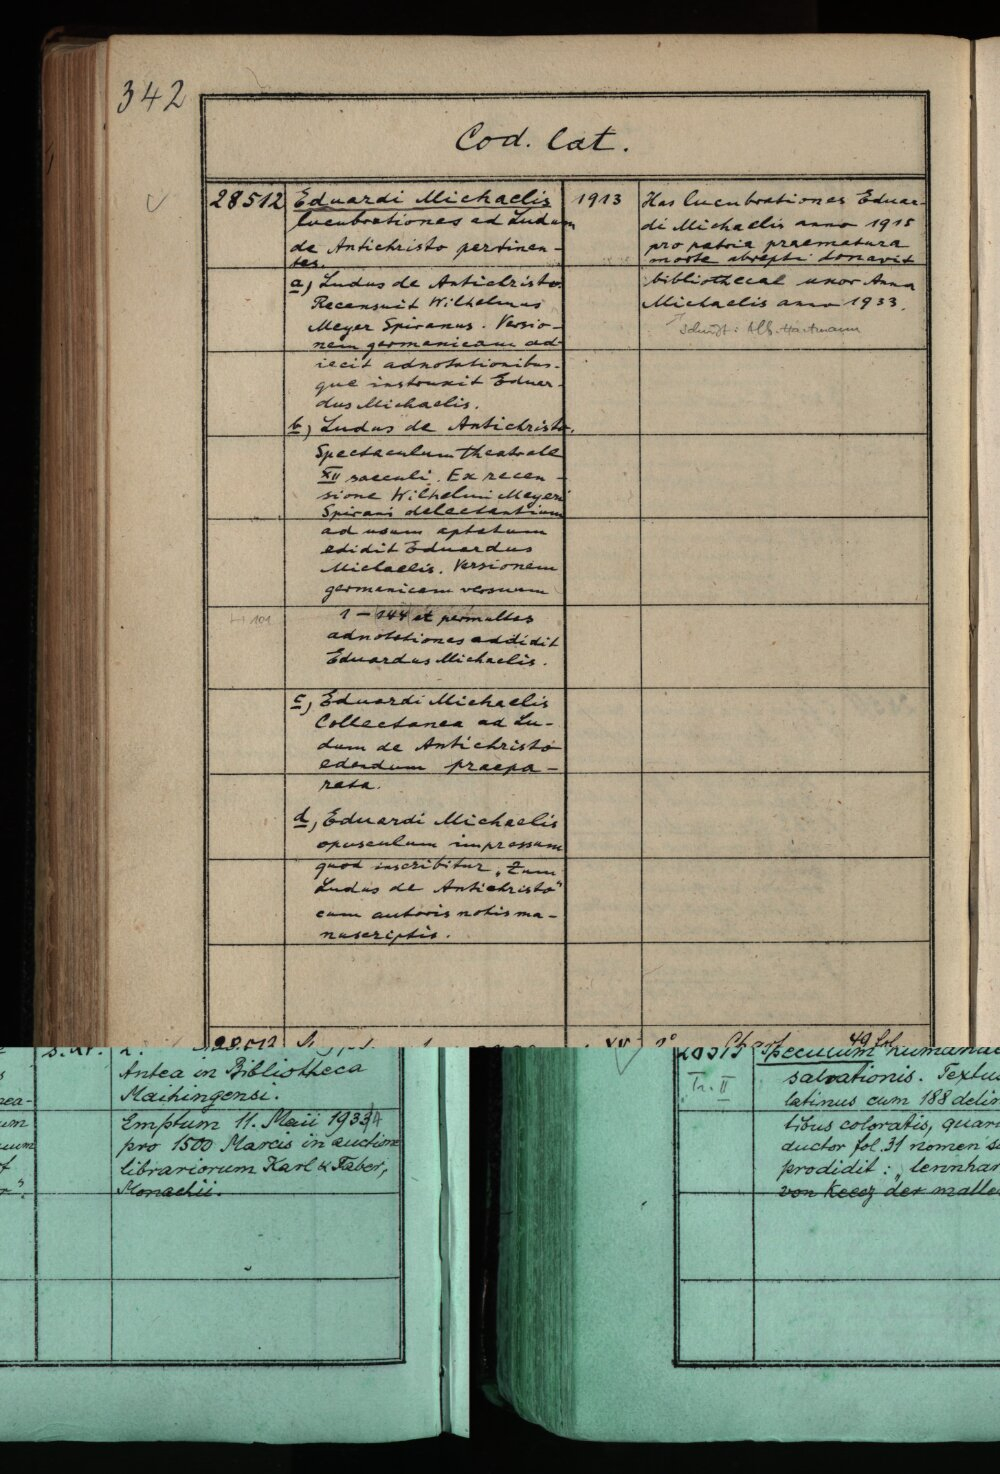 342
Cod. lat.
28512
Eduardi Michaelis
lucubrationes ad Ludum
de Antichristo pertinen-
tes.
a) Ludus de Antichristo.
Recensuit Wilhelmus
Meyer Spiranus. Versio-
nem germanicam ad-
iecit adnotationibus-
que instruxit Eduar-
dus Michaelis.
b) Ludus de Antichristo.
Spectaculum theatrale
XII saeculi. Ex recen-
sione Wilhelmi Meyeri
Spirani delectantium
ad usum aptatum
edidit Eduardus
Michaelis. Versionem
germanicam versuum
1 – 144 et permultas
adnotationes addidit
Eduardus Michaelis.
c) Eduardi Michaelis
Collectanea ad Lu-
dum de Antichristo
edendum praepa-
rata.
d) Eduardi Michaelis
opusculum impressum
quod inscribitur „Zum
Ludus de Antichristo"
cum autoris notis ma-
nuscriptis.
1913
Has lucubrationes Eduar-
di Michaelis anno 1915
pro patria praematura
morte abrepti donavit
bibliothecae uxor Anna
Michaelis anno 1933.
101
28512
49 fol
Antea in Bibliotheca
Maihingensi.
Emptum 11. Maii 1933/4
pro 1500 Marcis in auctione
librariorum Karl & Faber,
Monachii.
28513
Tr. II
Speculum humanae
salvationis. Textus
latinus cum 188 delin
tibus coloratis, quar
ductor fol. 31 nomen s
prodidit: „lennhar
von Keecz der malle